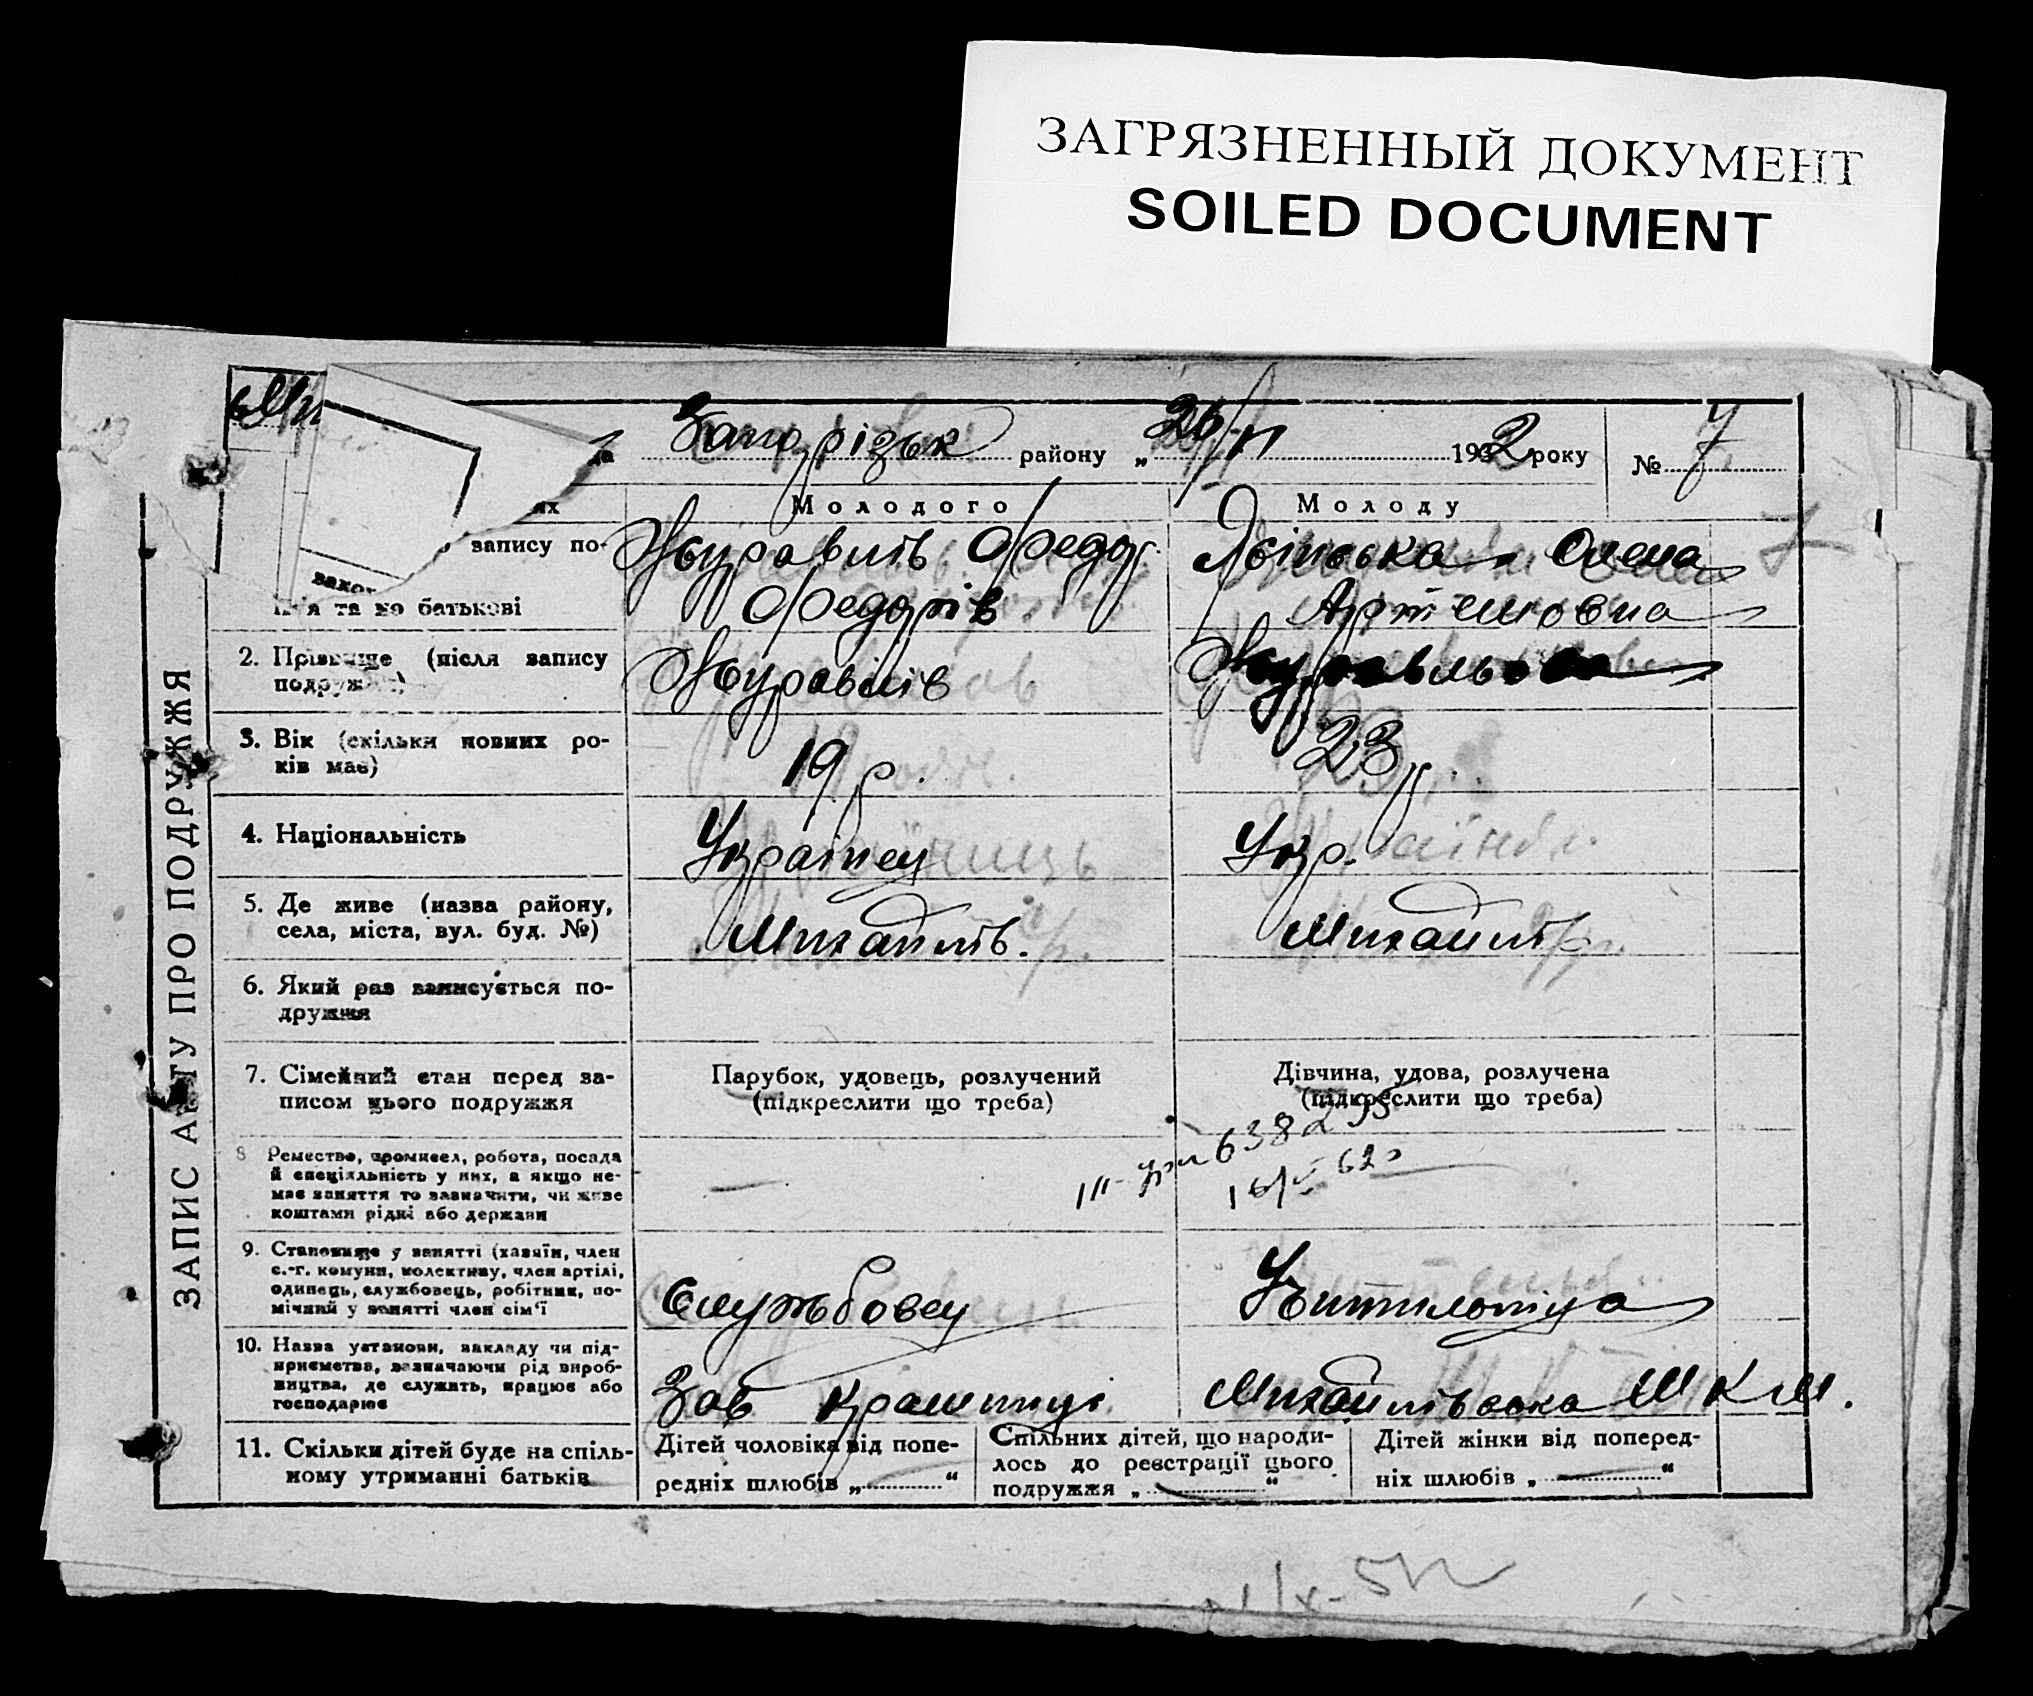 ЗАГРЯЗНЕННЫЙ ДОКУМЕНТ
SOILED DOCUMENT
Запорізьк району „ 26/II 1932 року № 7
Молодого Молоду
7
запису по- Журавлів Федор Олена
та по батькові Федорів Артемовна
2. Прізвище (після запису подружжя) Журавлів
3. Вік (скільки повних ро-
ків має) 19 р. 23 р.
4. Національність Українец Укр.
5. Де живе (назва району,
села, міста, вул. буд. №) Михайлів. Михайлів
6. Який раз записується по-
дружжя
7. Сімейний стан перед за- Парубок, удовець, розлучений Дівчина, удова, розлучена
писом цього подружжя (підкреслити що треба) (підкреслити що треба)
638295
8 Ремество, промисел, робота, посада
й спеціяльність у них, а якщо не-
має заняття то зазначити, чи живе
коштами рідні або держави
9. Становище у занятті (хазяїн, член
с.-г. комуни, колективу, член артілі,
одинець, службовець, робітник, по-
мічний у занятті член сім'ї Службовец
10. Назва установи, закладу чи під-
приємства, зазначаючи рід вироб-
ництва, де служить, працює або
господарює Зав крамниці Михайлівська Ш К М.
11. Скільки дітей буде на спіль-
ному утриманні батьків
Дітей чоловіка від попе-
редніх шлюбів „ “
Спільних дітей, що народи-
лось до реєстрації цього
подружжя „ “
Дітей жінки від поперед-
ніх шлюбів „ “
ЗАПИС АКТУ ПРО ПОДРУЖЖЯ